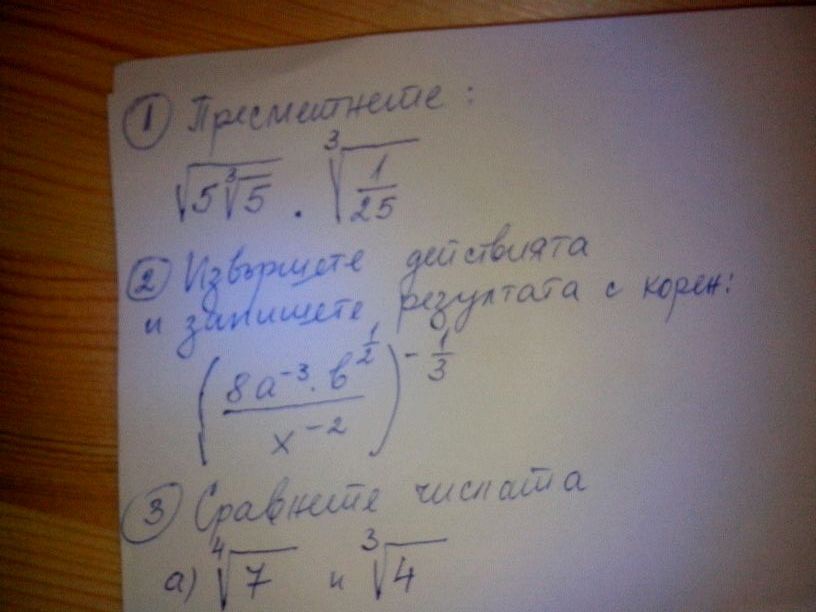 1 Пресметнете:
√(5∛5) . ∛(1/25)
2 Извършете действията
и запишете резултата с корен:
(8a⁻³.b^(1/2) / x⁻²)^(-1/3)
3 Сравнете числата
а) ∜7 и ∛4